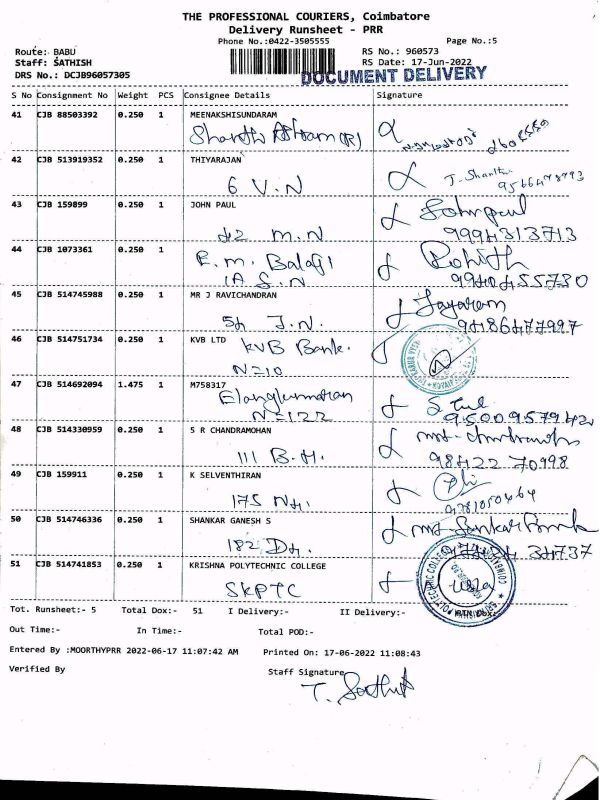 THE PROFESSIONAL COURIERS, Coimbatore
Delivery Runsheet - PRR
Phone No.:0422-3505555 Page No.:5
Route: BABU RS No.: 960573
Staff: SATHISH RS Date: 17-Jun-2022
DRS No.: DCJB96057305 DOCUMENT DELIVERY
S No Consignment No Weight PCS Consignee Details Signature
41 CJB 88503392 0.250 1 MEENAKSHISUNDARAM
42 CJB 513919352 0.250 1 THIYARAJAN
6 V.N
43 CJB 159899 0.250 1 JOHN PAUL Johnpaul
42 M.N 9994313713
44 CJB 1073361 0.250 1 R.M. Balaji Rohith
1A S.N 9940455730
45 CJB 514745988 0.250 1 MR J RAVICHANDRAN Jayaram
54 J.N. 9486477997
46 CJB 514751734 0.250 1 KVB LTD KVB Bank.
N=10
47 CJB 514692094 1.475 1 M758317
N=122 9500957942
48 CJB 514330959 0.250 1 S R CHANDRAMOHAN
111 B.H. 98422 70998
49 CJB 159911 0.250 1 K SELVENTHIRAN
175 9781050464
50 CJB 514746336 0.250 1 SHANKAR GANESH S
182
51 CJB 514741853 0.250 1 KRISHNA POLYTECHNIC COLLEGE
SKPTC
Tot. Runsheet:- 5 Total Dox:- 51 I Delivery:- II Delivery:-
Out Time:- In Time:- Total POD:-
Entered By :MOORTHYPRR 2022-06-17 11:07:42 AM Printed On: 17-06-2022 11:08:43
Verified By Staff Signature
T. Sathish